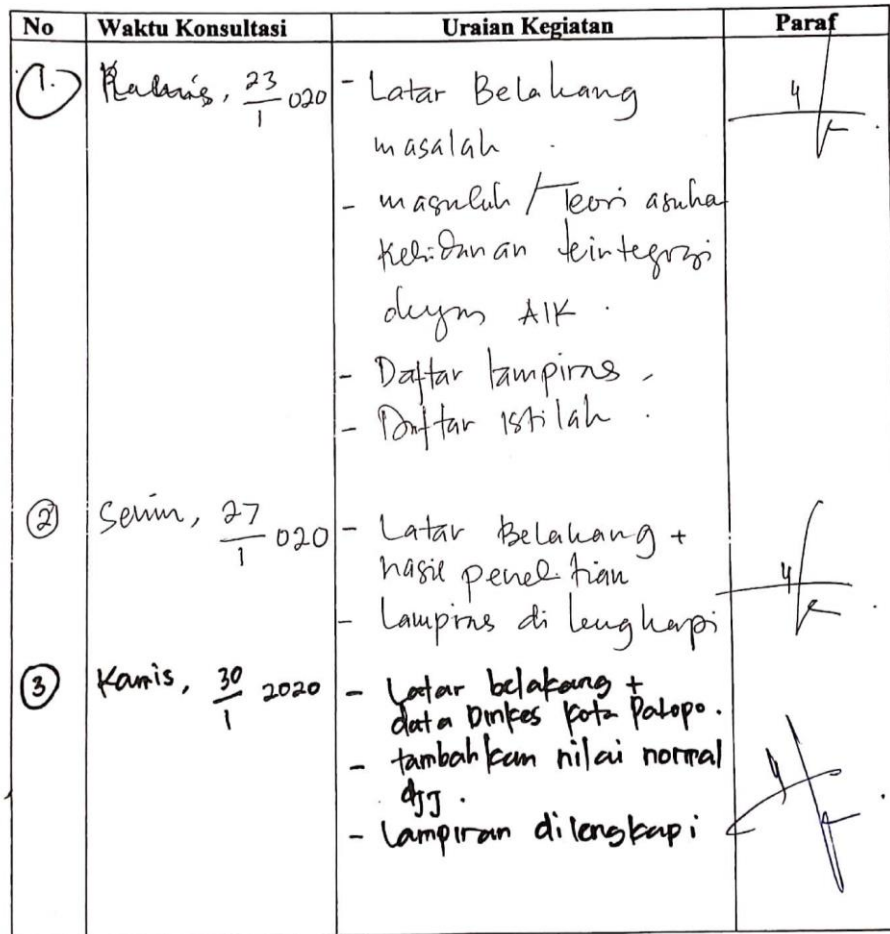 No Waktu Konsultasi Uraian Kegiatan Paraf
1. Kamis, 23/1 020 - Latar Belakang
masalah.
- masalah / Teori asuha
Kebidanan terintegrasi
dengan AIK.
- Daftar lampiran,
- Daftar Istilah.
2 Senin, 27/1 020 - Latar Belakang +
hasil penelitian
- Lampiran di lengkapi
3 Kamis, 30/1 2020 - Latar belakang +
data Dinkes Kota Palopo.
- tambahkan nilai normal
djj.
- Lampiran dilengkapi